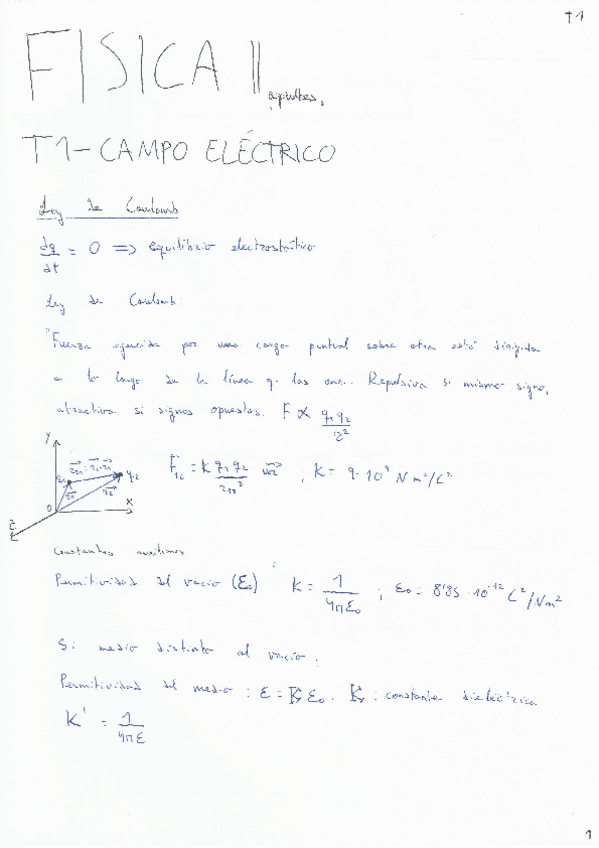 T1
FISICA II
apuntes,
T1-CAMPO ELÉCTRICO
Ley de Coulomb
dq/dt = 0 => equilibrio electrostático
Ley de Coulomb:
"Fuerza ejercida por una carga puntual sobre otra está dirigida
a lo largo de la línea q. las une. Repulsiva si mismo signo,
atractiva si signos opuestos. F ∝ q₁q₂/r²
Y
q₂
0
X
Z
F₁₂ = K q₁q₂/r₁₂² ; K = 9·10⁹ Nm²/C²
Constantes
Permitividad del vacío (ε₀) K = 1/4πε₀ ; ε₀ = 8'85·10⁻¹² C²/Nm²
Si medio distinto al vacío:
Permitividad del medio: ε = Kε₀. K: constante dieléctrica
K' = 1/4πε
1